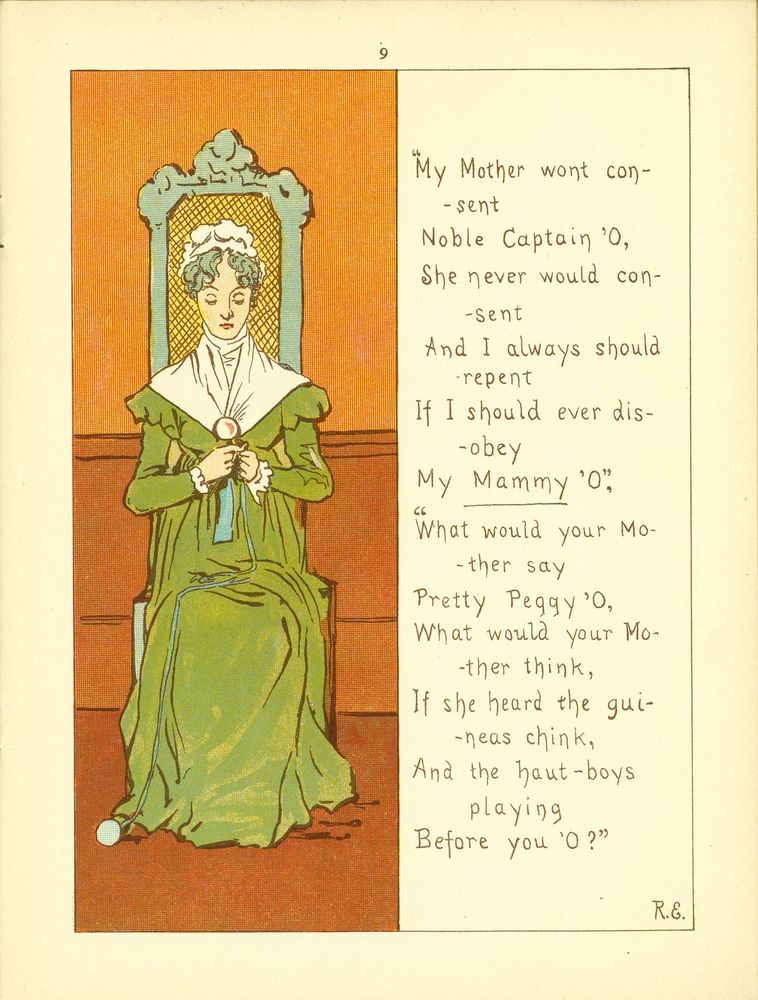 9
“My Mother wont con-
-sent
Noble Captain 'O,
She never would con-
-sent
And I always should
-repent
If I should ever dis-
-obey
My Mammy 'O”,
“What would your Mo-
-ther say
Pretty Peggy 'O,
What would your Mo-
-ther think,
If she heard the gui-
-neas chink,
And the haut-boys
playing
Before you 'O?”
R.E.